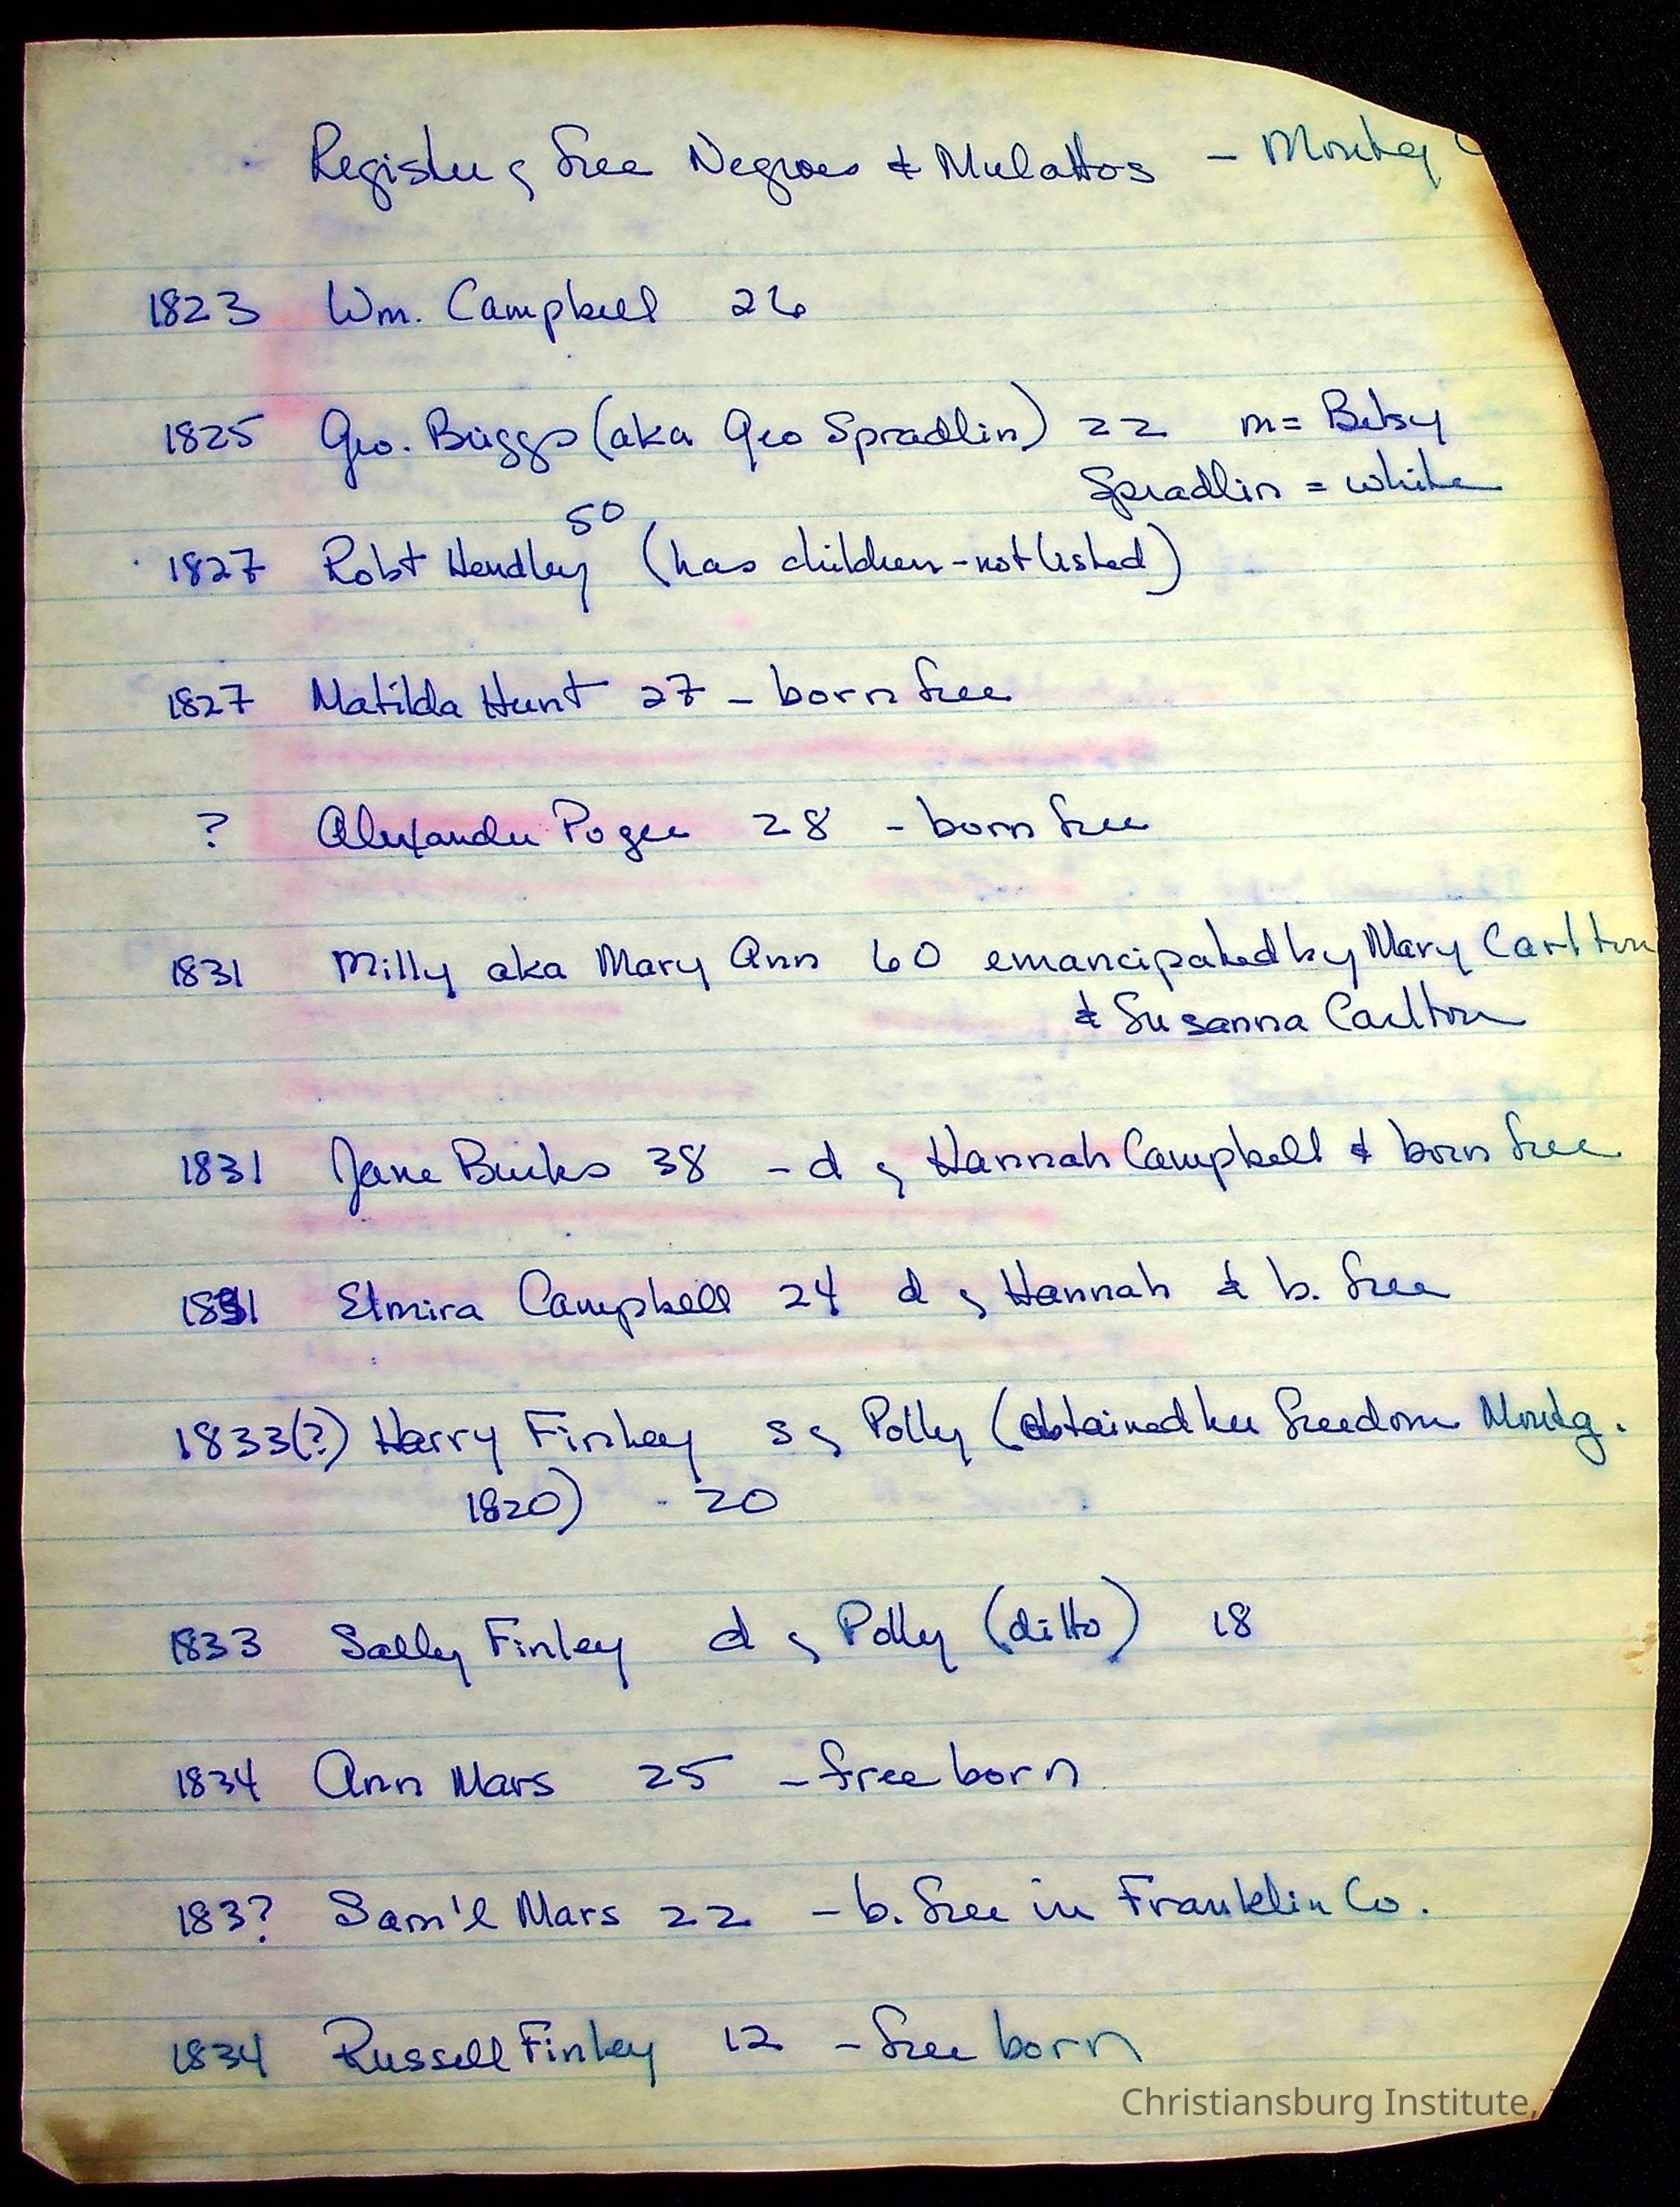 Register of Free Negroes & Mulattos - Montg C
1823 Wm. Campbell 26
1825 Geo. Briggs (aka Geo Spradlin) 22 m= Betsy
Spradlin = white
50
1827 Robt Hendley (has children - not listed)
1827 Matilda Hunt 27 - born free
? Alexander Poger 28 - born free
1831 Milly aka Mary Ann 60 emancipated by Mary Carlton
& Susanna Carlton
1831 Jane Burks 38 - d of Hannah Campbell & born free
1831 Elmira Campbell 24 d of Hannah & b. free
1833(?) Harry Finley s of Polly (obtained her freedom Montg.
1820) - 20
1833 Sally Finley d of Polly (ditto) 18
1834 Ann Mars 25 - free born
183? Sam'l Mars 22 - b. free in Franklin Co.
1834 Russell Finley 12 - free born
Christiansburg Institute,